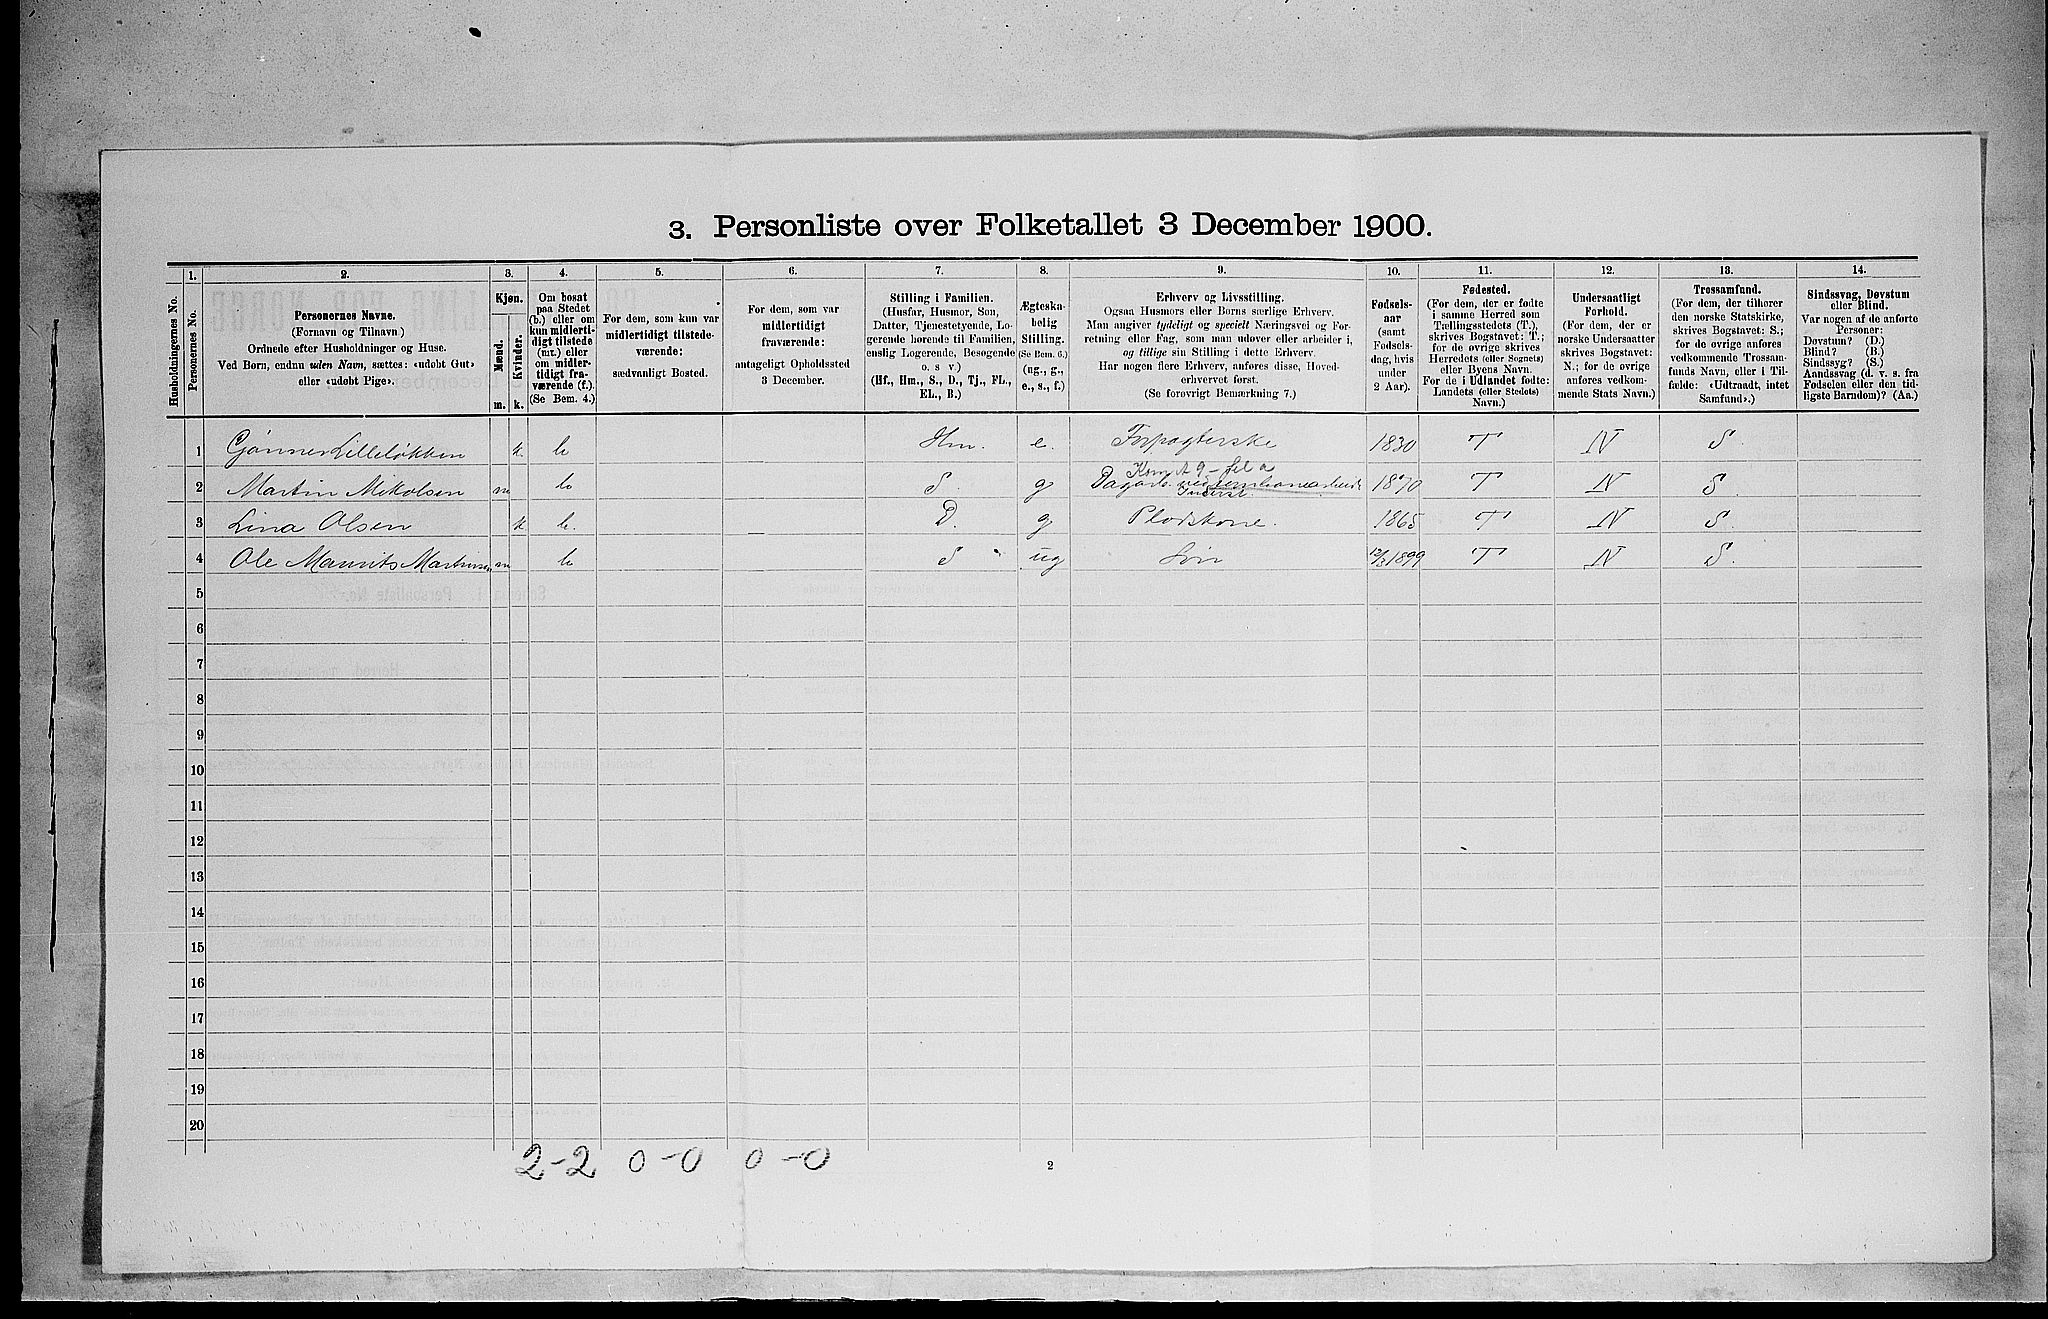 3. Personliste over Folketallet 3 December 1900.
1. 2. 3. 4. 5. 6. 7. 8. 9. 10. 11. 12. 13. 14.
Husholdningernes No.
Personernes No.
Personernes Navne.
(Fornavn og Tilnavn.)
Ordnede efter Husholdninger og Huse.
Ved Børn, endnu uden Navn, sættes: «udøbt Gut»
eller «udøbt Pige».
Kjøn.
Mænd.
Kvinder.
m. k.
Om bosat
paa Stedet
(b.) eller om
kun midlerti-
digt tilstede
(mt.) eller
om midler-
tidigt fra-
værende (f.).
(Se Bem. 4.)
For dem, som kun var
midlertidigt tilstede-
værende:
sædvanligt Bosted.
For dem, som var
midlertidigt
fraværende:
antageligt Opholdssted
3 December.
Stilling i Familien.
(Husfar, Husmor, Søn,
Datter, Tjenestetyende, Lo-
gerende hørende til Familien,
enslig Logerende, Besøgende
o. s v.)
(Hf., Hm., S., D., Tj., FL.,
EL., B.)
Ægteska-
belig
Stilling.
(Se Bem. 6.)
(ug., g.,
e., s., f.)
Erhverv og Livsstilling.
Ogsaa Husmors eller Børns særlige Erhverv.
Man angiver tydeligt og specielt Næringsvei og For-
retning eller Fag, som man udøver eller arbeider i,
og tillige sin Stilling i dette Erhverv.
Har nogen flere Erhverv, anføres disse, Hoved-
erhvervet først.
(Se forøvrigt Bemærkning 7.)
Fødsels-
aar
(samt
Fødsels-
dag, hvis
under
2 Aar).
Fødested.
(For dem, der er fødte
i samme Herred som
Tællingsstedets (T.),
skrives Bogstavet: T.;
for de øvrige skrives
Herredets (eller Sognets)
eller Byens Navn.
For de i Udlandet fødte:
Landets (eller Stedets)
Navn.)
Undersaatligt
Forhold.
(For dem, der er
norske Undersaatter
skrives Bogstavet:
N.; for de øvrige
anføres vedkom-
mende Stats Navn.)
Trossamfund.
(For dem, der tilhører
den norske Statskirke,
skrives Bogstavet: S.;
for de øvrige anføres
vedkommende Trossam-
funds Navn, eller i Til-
fælde: «Udtraadt, intet
Samfund».)
Sindssvag, Døvstum
eller Blind.
Var nogen af de anførte
Personer:
Døvstum? (D.)
Blind? (B.)
Sindssyg? (S.)
Aandssvag (d. v. s. fra
Fødselen eller den tid-
ligste Barndom)? (Aa.)
1 Gjønner Lilleløkken k. b Hm. e. Forpagterske 1830 T N S
2 Martin Mikolsen m b S. g 1870 T N S.
3 Lina Olsen k b. D. g 1865 T N S.
4 Ole Maurits Martinsen m b S ug Søn 12/3 1899 T N S.
5
6
7
8
9
10
11
12
13
14
15
16
17
18
19
20
2-2 0-0 0-0
2